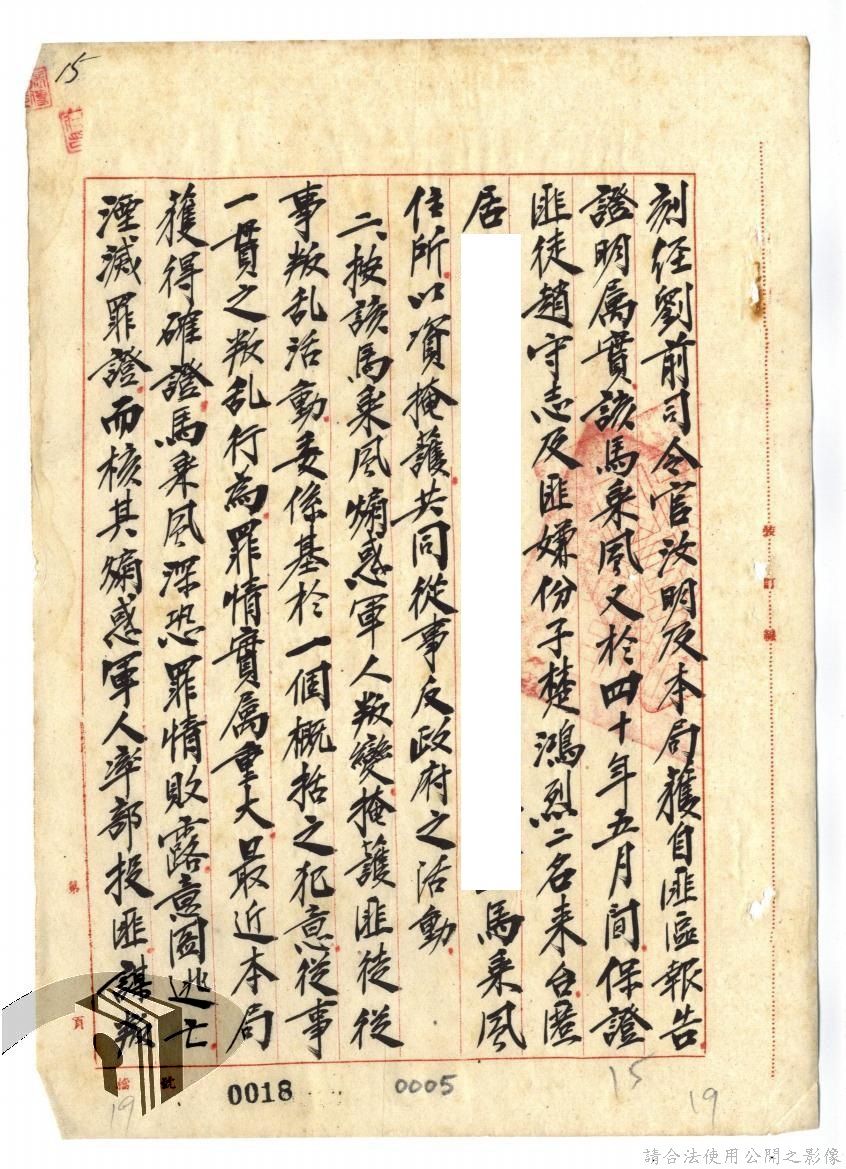 15
刻经劉前司令官汝明及本局獲自匪區報告
證明属實該馬乘風又於四十年五月間保證
匪徒趙守志及匪嫌份子楚鴻烈二名来台匿
居
馬乘風
住所以資掩護共同從事反政府之活動
二、按該馬乘風煽惑軍人叛變掩護匪徒從
事叛乱活動委係基於一個概括之犯意從事
一貫之叛乱行為罪情實属重大最近本局
獲得確證馬乘風深恐罪情敗露意圖逃亡
湮滅罪證而核其煽惑軍人率部投匪謀叛
裝訂線
第
頁
檔
號
0018
0005
15
19
19
請合法使用公開之影像